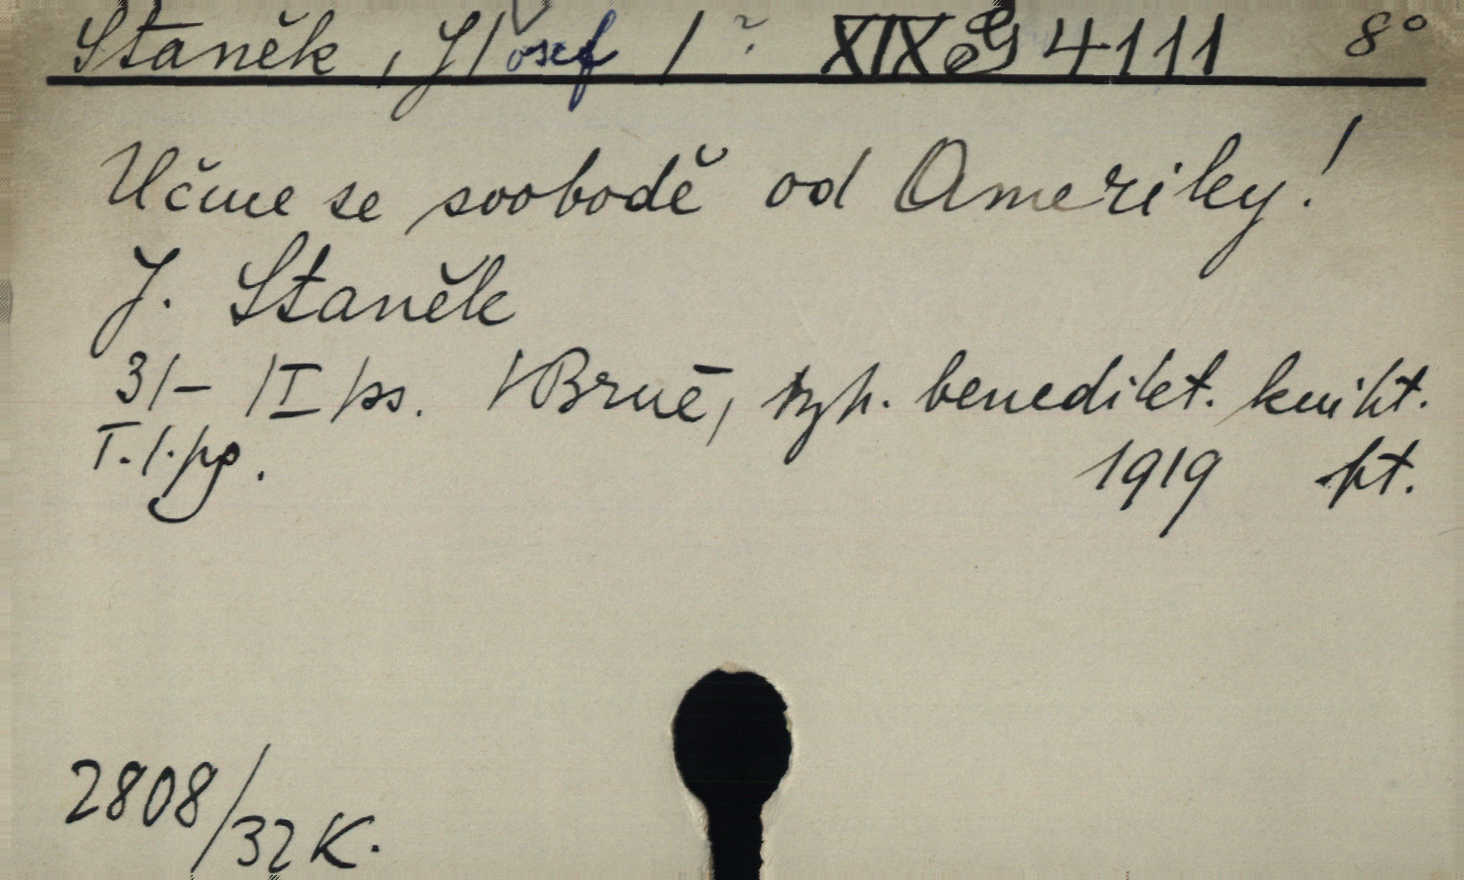 Staněk, J/osef/ XIX G 4111 8°
Učme se svobodě od Ameriky!
J. Staněk
31- /I/ ps. V Brně, typ. benedikt. kniht.
1919 pt.
2808/32 K.